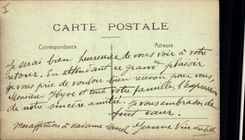 I
CARTE POSTALE
Correspondance
Adresse
Je serai bien heureuse de vous voir à votre
retour. En attendant ce grand plaisir
je vous prie de vouloir bien recevoir pour vous,
Monsieur et toute votre famille, l'expression
de notre sincère amitié. Je vous embrasse de
tout cœur.
Mes affections à Madame Jeanne